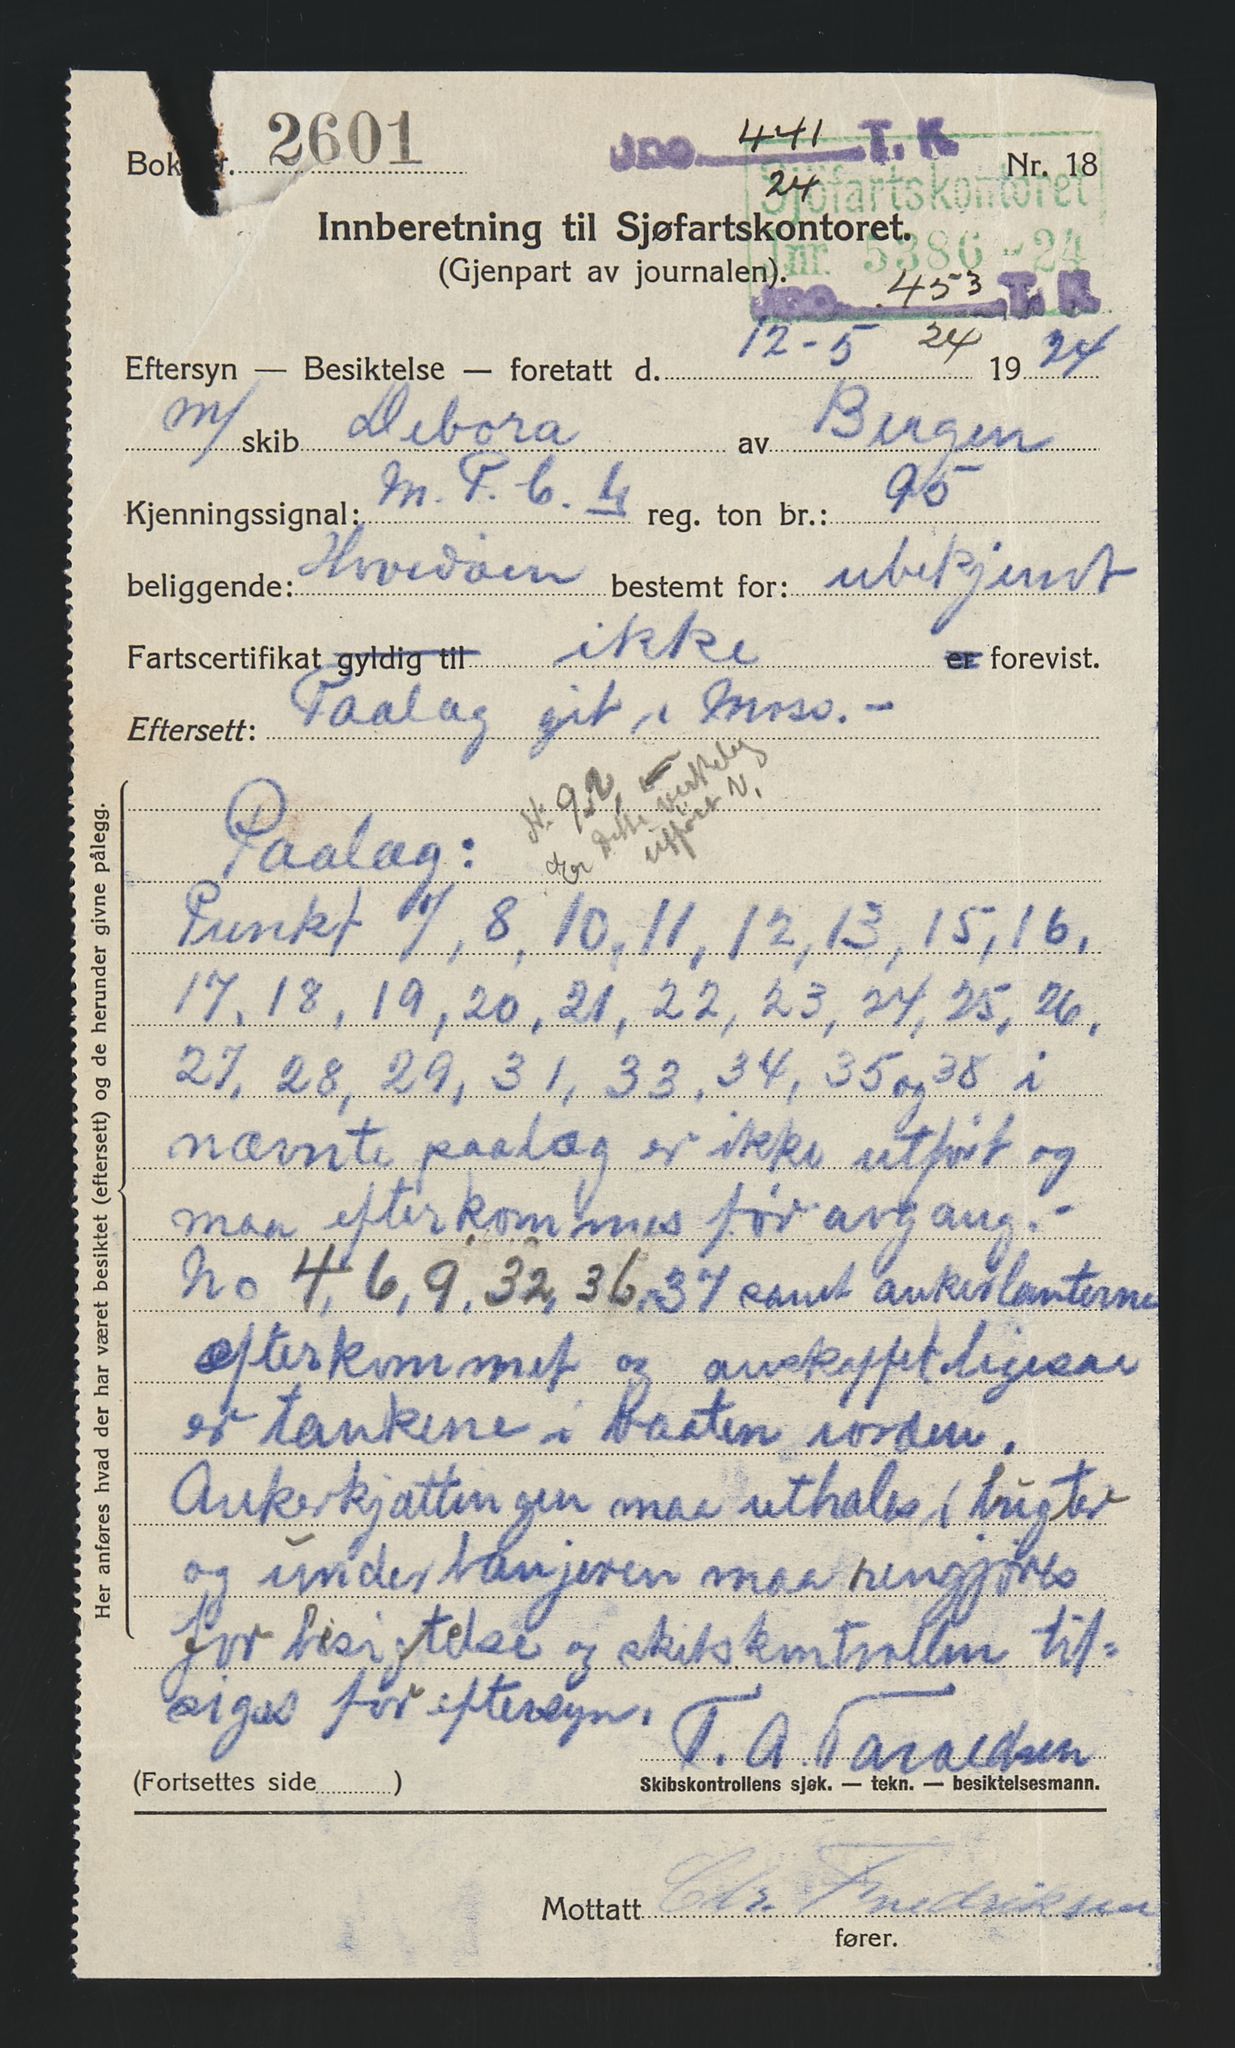 Bok nr. 2601
JNO 441 T. K
24
Nr. 18
Sjöfartskontoret
Jnr. 5386 - 24
Innberetning til Sjøfartskontoret.
(Gjenpart av journalen).
JNO 453 T. K
24
Eftersyn — Besiktelse — foretatt d. 12-5 1924
m/ skib Debora av Bergen
Kjenningssignal: M. T. C. reg. ton br.: 95
beliggende: Hovedøen bestemt for: ubekjendt
Fartscertifikat gyldig til ikke er forevist.
Eftersett: Paalag git i Moss. -
Nr. 92,
Er dette virkelig
utført N.
Paalag:
Punkt 7, 8, 10, 11, 12, 13, 15, 16,
17, 18, 19, 20, 21, 22, 23, 24, 25, 26,
27, 28, 29, 31, 33, 34, 35 og 38 i
nævnte paalæg er ikke utført og
maa efterkommes før avgang. -
No 4, 6, 9, 32, 36, 37 samt ankerlanterne
efterkommet og anskaffet ligesaa
er tankene i baaten iorden.
Ankerkjættingen maa uthales i bugter
og underbanjeren maa rengjøres
for besigtelse og skibskontrollen til-
siges for eftersyn.
T. A. Taraldsen
(Fortsettes side )
Skibskontrollens sjøk. — tekn. — besiktelsesmann.
Mottatt Chr. Fredriksen
fører.
Her anføres hvad der har været besiktet (eftersett) og de herunder givne pålegg.